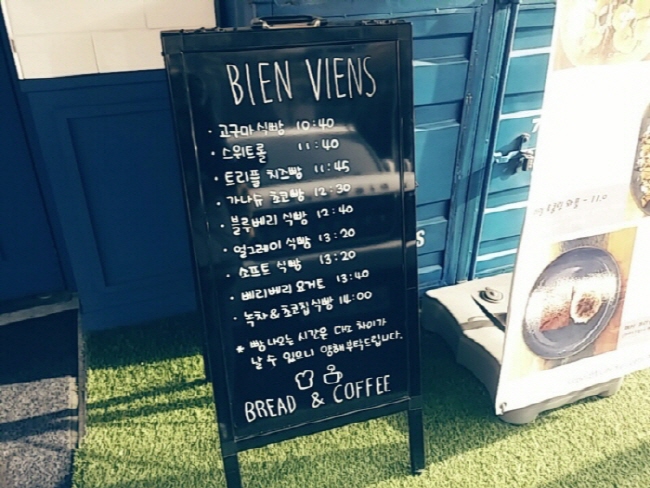 BIEN VIENS
· 고구마 식빵 10:40
· 스위트롤 11:40
· 트리플 치즈빵 11:45
· 가나슈 쵸코빵 12:30
· 블루베리 식빵 12:40
· 얼그레이 식빵 13:20
· 소프트 식빵 13:20
· 베리베리 요거트 13:40
· 녹차&쵸코칩식빵 14:00
* 빵 나오는 시간은 다소 차이가
날 수 있으니 양해부탁드립니다.
BREAD & COFFEE